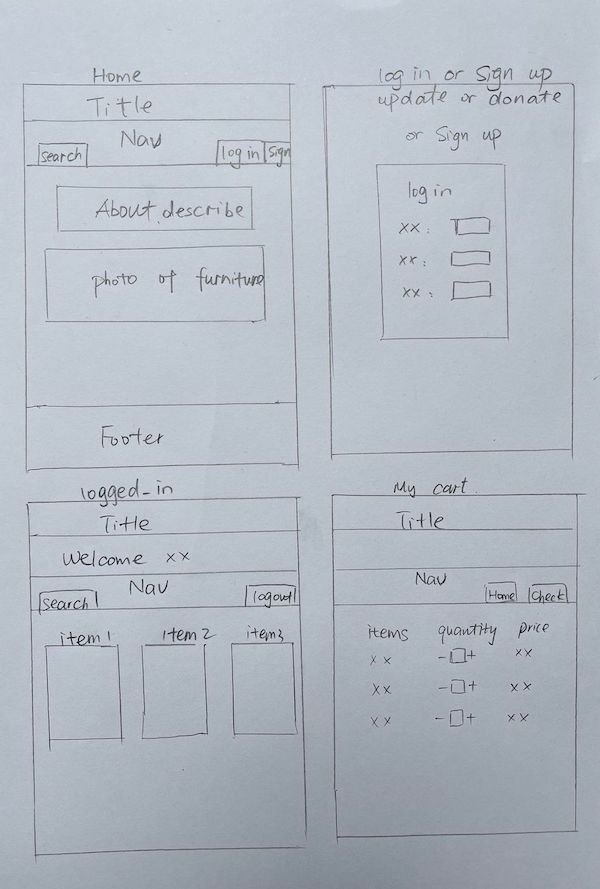 Home
Title
Nav
search
log in
Sign
About describe
photo of furniture
Footer
log in or Sign up
update or donate
or Sign up
log in
xx :
xx :
xx :
logged-in
Title
Welcome xx
Nav
Search
logout
item1 item2 item3
My cart
Title
Nav
Home
Check
items quantity price
xx - + xx
xx - + xx
xx - + xx